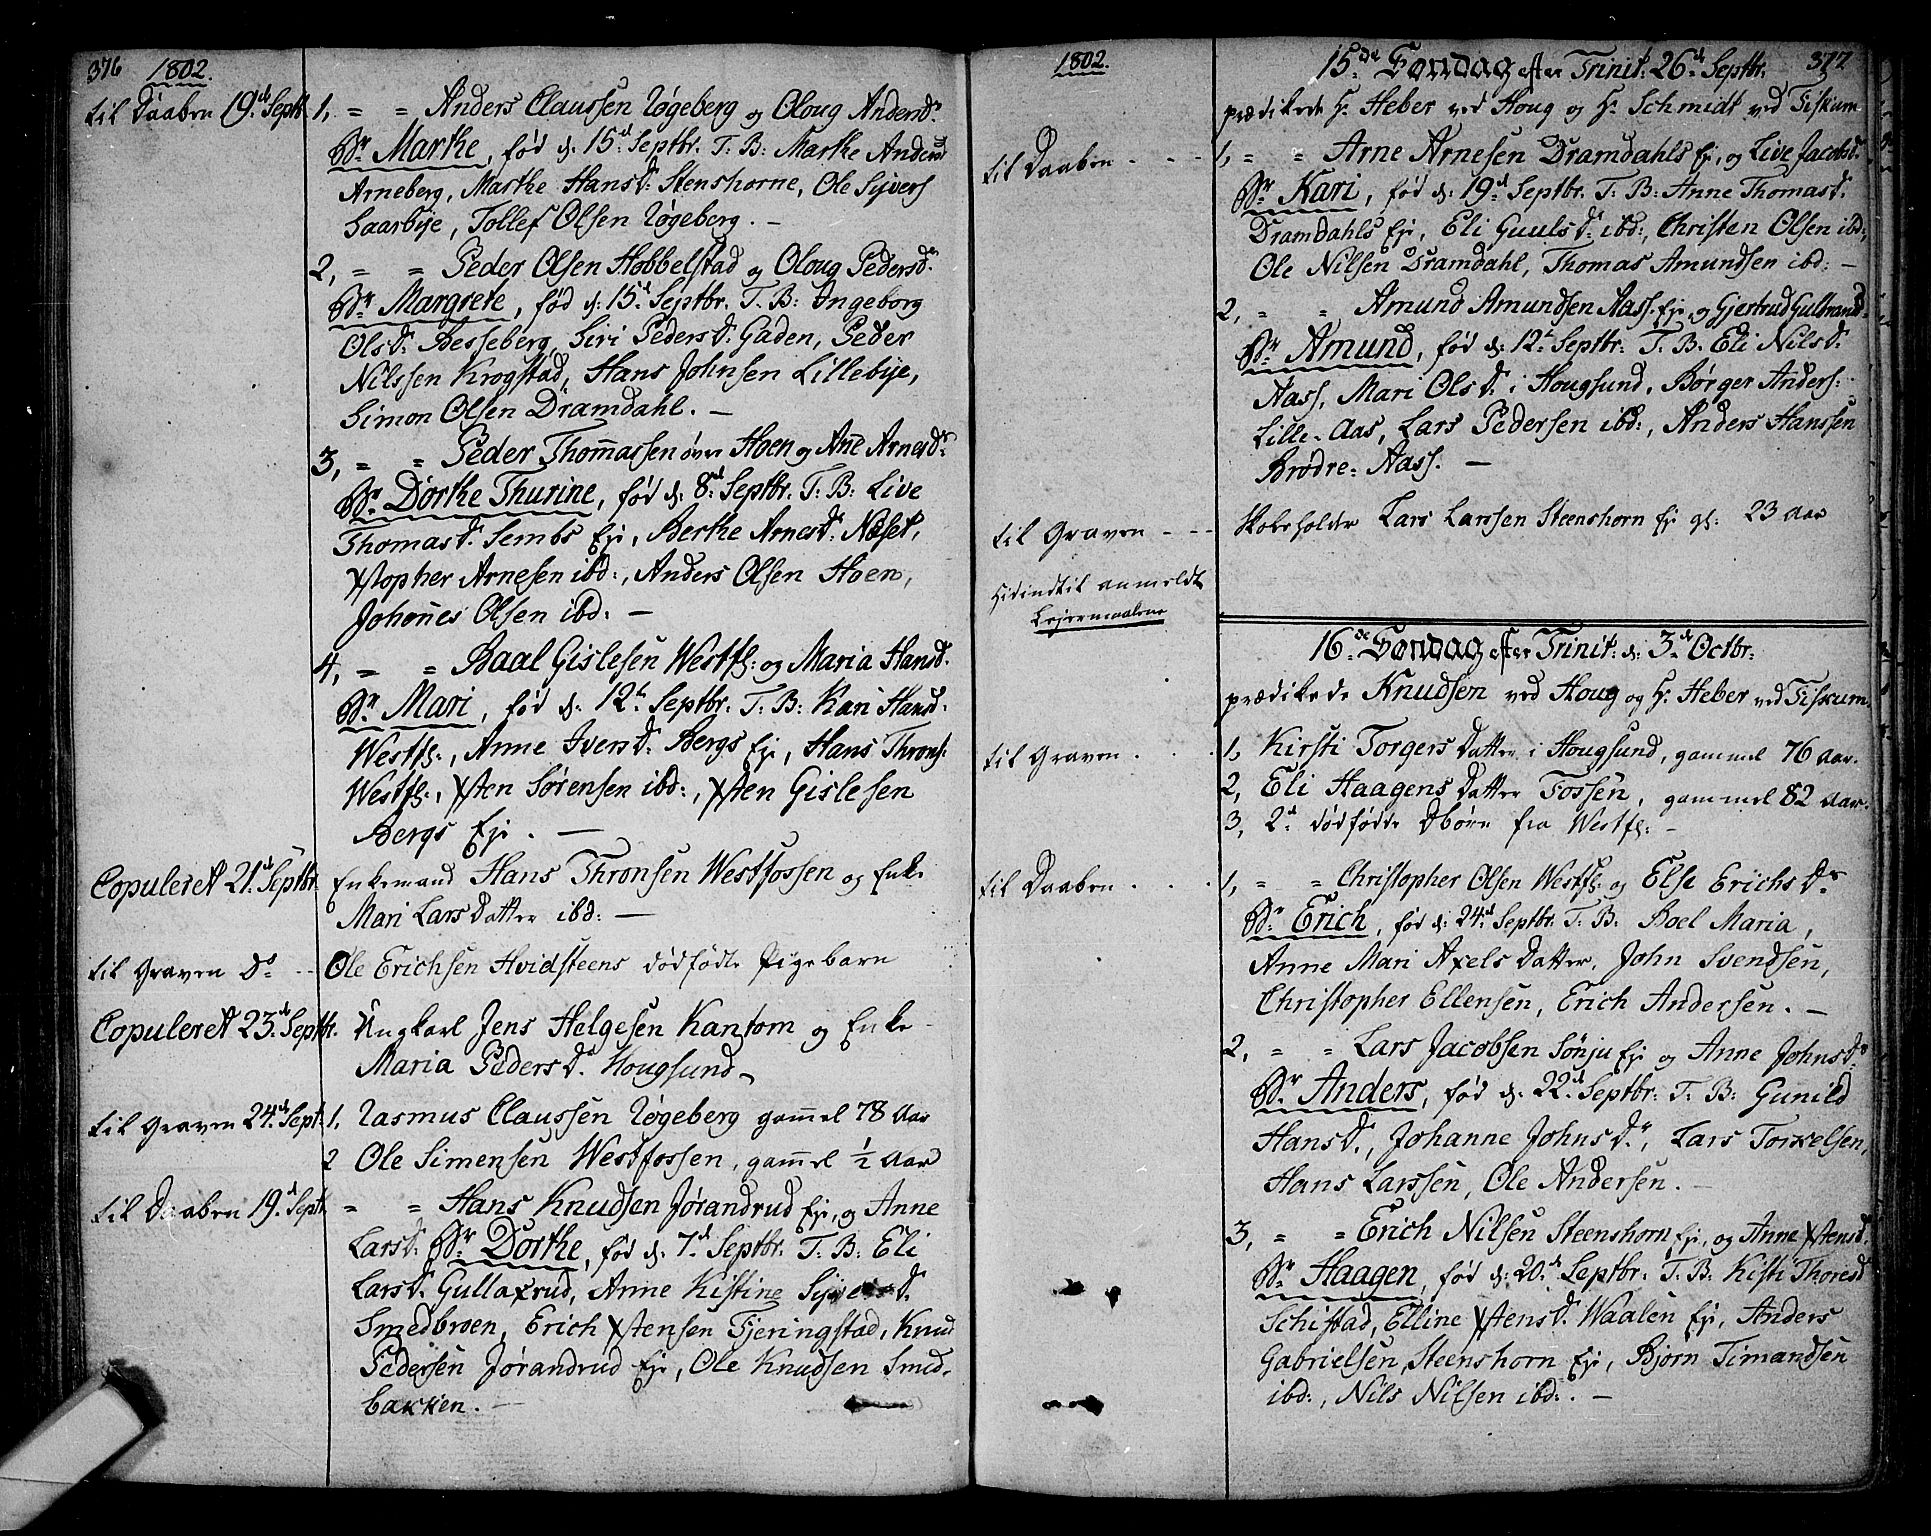 376 1802.
til Daaben 19.d Septr. 1, " " Anders Claussen Røgeberg og Oloug Andersd.r
Br. Marthe, fød d: 15.d Septbr. T. B: Marthe Andersd
Arneberg, Marthe Hansd. Stenshorne, Ole Syvers
Saarbye, Tollef Olsen Røgeberg. —
2, " " Peder Olsen Hobbelstad og Oloug Pedersd.
Br. Margrete, fød d: 15.d Septbr. T. B: Ingeborg
Olsd. Besseberg, Siri Pedersd. Gaden, Peder
Nilssen Krogstad, Hans Johnsen Lillebye,
Simon Olsen Dramdahl. —
3, " " Peder Thom̄assen øvre Hoen og An̄e Arnesd.r
Br. Dorthe Thurine, fød d: 8.d Septbr. T. B: Live
Thomasd. Sembs Eje, Berthe Arnesd. Næset,
Xstopher Arnesen ibd:, Anders Olsen Hoen,
Johan̄es Olsen ibd: —
4, " " Baal Gislesen Westfs: og Maria Hansd.
Br. Mari, fød d. 12.t Septbr. T. B: Kari Hansd.
Westfs:, Anne Iversd. Bergs Eje, Hans Throns:
Westfs:, Xsten Sørensen ibd:, Xsten Gislesen
Bergs Eje. —
Copuleret 21.d Septbr. Enkemand Hans Thronsen Westfossen og Enke
Mari Lars Datter ibd: —
til Graven Do -- Ole Erichsen Hvidsteens dödfödte Pigebarn
Copuleret 23.d Septbr. Ungkarl Jens Helgesen Kantom og Enke
Maria Pedersd. Hougsund
til Graven 24.d Sept: 1, Rasmus Claussen Røgeberg gam̄el 78 Aar
2 Ole Simensen Westfossen, gam̄el 1/2 Aar
til Daaben 19.d Septr. " " Hans Knudsen Jørandrud Eje, og Anne
Larsd. Br. Dorthe, fød d. 7.d Septbr. T. B: Eli
Larsd. Gullaxrud, Anne Kistine Syversd.
Smedbroen, Erich Xstensen Tjeringstad, Knud
Pedersen Jørandrud Eje, Ole Knudsen Smed-
bakken. —
1802. 15.de Søndag efter Trinit: 26.d Septbr. 377
prædikede Hr. Heber ved Houg og Hr. Schmidt ved Fiskum
til Daaben - - - 1, " " Arne Arnesen Dramdahls Eje, og Live Jacobsd.
Br. Kari, fød d. 19.d Septbr. T. B: Anne Thomasd.
Dramdahls Eje, Eli Guulsd. ibd:, Christen Olsen ibd:
Ole Nilsen Dramdahl, Thomas Amundsen ibd: —
2, " " Amund Amundsen Aass. Eje, og Gjertrud Gulbrandsd
Br. Amund, fød d. 12.t Septbr. T. B. Eli Nilsd.
Aass, Mari Olsd. i Hougsund, Børger Anders:
Lille-Aas, Lars Pedersen ibd:, Anders Hanssen
Brødre-Aass. —
til Graven - - - Skoleholder Lars Larssen Steenshorn Eje gl: 23 Aar
Hidindtil anmeldte
Lejermaalene
16.de Søndag efter Trinit: d: 3.d Octbr.
prædikede Knudsen ved Houg og Hr. Heber ved Fiskum
til Graven . . . 1, Kirsti Torgers Datter i Hougsund, gammel 76 Aar.
2, Eli Haagens Datter Fossen, gammel 82 Aar.
3, 2.d dödfödde Dbörn fra Westfs: —
til Daaben . . . 1, " " Christopher Olsen Westfs: og Else Erichs D.r
Br. Erich, fød d. 24.d Septbr. T. B. Boel Maria,
Anne Mari Axels Datter, John Svendsen,
Christopher Ellensen, Erich Andersen. —
2, " " Lars Jacobsen Sønju Eje og Anne Johnsd.r
Br. Anders, fød d. 22.d Septbr. T. B: Gunild
Hansd., Johanne Johnsd.r, Lars Torkelsen,
Hans Larssen, Ole Andersen. —
3, " " Erich Nilsen Steenshorn Eje, og Anne Xstensd.
Br. Haagen, fød d. 20.d Septbr. T. B. Kisti Thoresd
Schistad, Elline Xstensd. Waalen Eje, Anders
Gabrielsen, Steenshorn Eje, Bjørn Timandsen
ibd:, Nils Nilsen ibd:. —